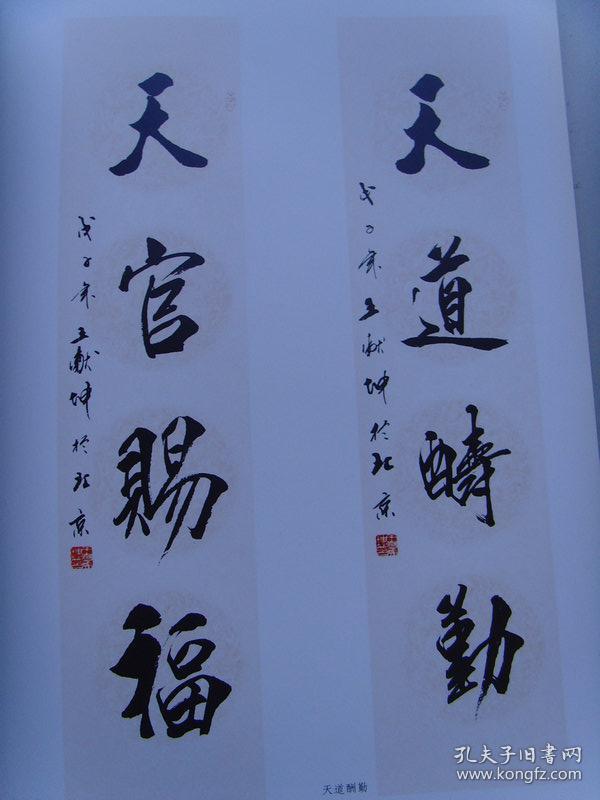 天道酬勤
戊子年王献坤於北京
天官賜福
戊子年王献坤於北京
天道酬勤
孔夫子旧书网
www.kongfz.com